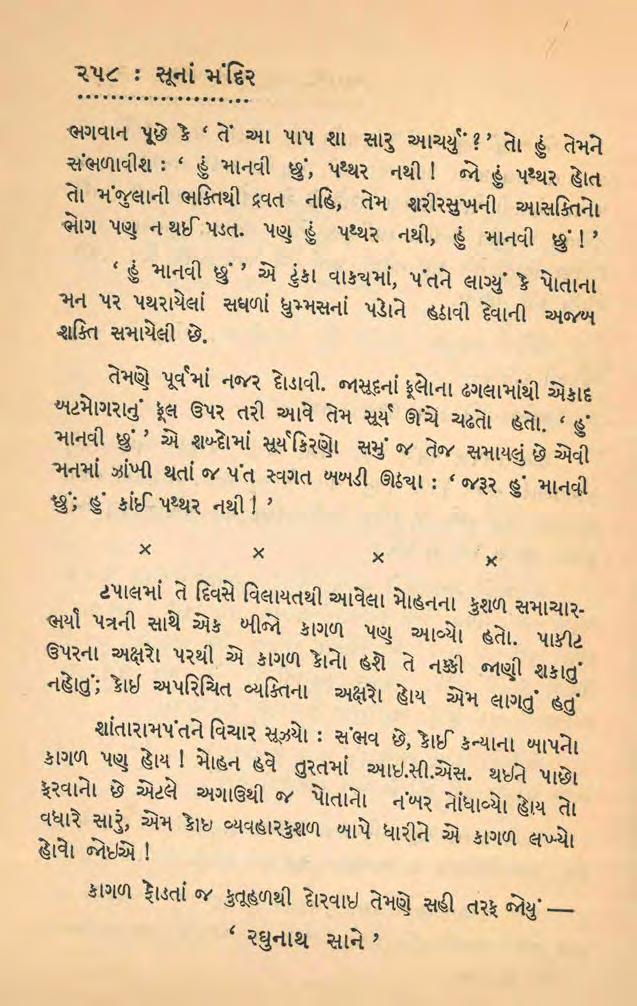 ૨૫૮ : સૂનાં મંદિર
ભગવાન પૂછે કે ‘ તેં આ પાપ શા સારુ આચર્યું ? ’ તો હું તેમને
સંભળાવીશ : ‘ હું માનવી છું, પથ્થર નથી ! જો હું પથ્થર હોત
તો મંજુલાની ભક્તિથી દ્રવત નહિ, તેમ શરીરસુખની આસક્તિનો
ભોગ પણ ન થઈ પડત. પણ હું પથ્થર નથી, હું માનવી છું ! ’
‘ હું માનવી છું ’ એ ટુંકા વાક્યમાં, પંતને લાગ્યું કે પોતાના
મન પર પથરાયેલાં સઘળાં ધુમ્મસનાં પડોને હઠાવી દેવાની અજબ
શક્તિ સમાયેલી છે.
તેમણે પૂર્વમાં નજર દોડાવી. જાસૂદનાં ફૂલોના ઢગલામાંથી એકાદ
બટમોગરાનું ફૂલ ઉપર તરી આવે તેમ સૂર્ય ઊંચે ચઢતો હતો. ‘ હું
માનવી છું ’ એ શબ્દોમાં સૂર્યકિરણો સમું જ તેજ સમાયલું છે એવી
મનમાં ઝાંખી થતાં જ પંત સ્વગત બબડી ઊઠ્યા : ‘ જરૂર હું માનવી
છું; હું કાંઈ પથ્થર નથી ! ’
× × × ×
ટપાલમાં તે દિવસે વિલાયતથી આવેલા મોહનના કુશળ સમાચાર-
ભર્યા પત્રની સાથે એક બીજો કાગળ પણ આવ્યો હતો. પાકીટ
ઉપરના અક્ષરો પરથી એ કાગળ કોનો હશે તે નક્કી જાણી શકાતું
નહોતું; કોઇ અપરિચિત વ્યક્તિના અક્ષરો હોય એમ લાગતું હતું
શાંતારામપંતને વિચાર સૂઝ્યો : સંભવ છે, કોઈ કન્યાના બાપનો
કાગળ પણ હોય ! મોહન હવે તુરતમાં આઇ.સી.એસ. થઇને પાછો
ફરવાનો છે એટલે અગાઉથી જ પોતાનો નંબર નોંધાવ્યો હોય તો
વધારે સારું, એમ કોઇ વ્યવહારકુશળ બાપે ધારીને એ કાગળ લખ્યો
હોવો જોઇએ !
કાગળ ફોડતાં જ કુતૂહળથી દોરવાઇ તેમણે સહી તરફ જોયું —
‘ રઘુનાથ સાને ’